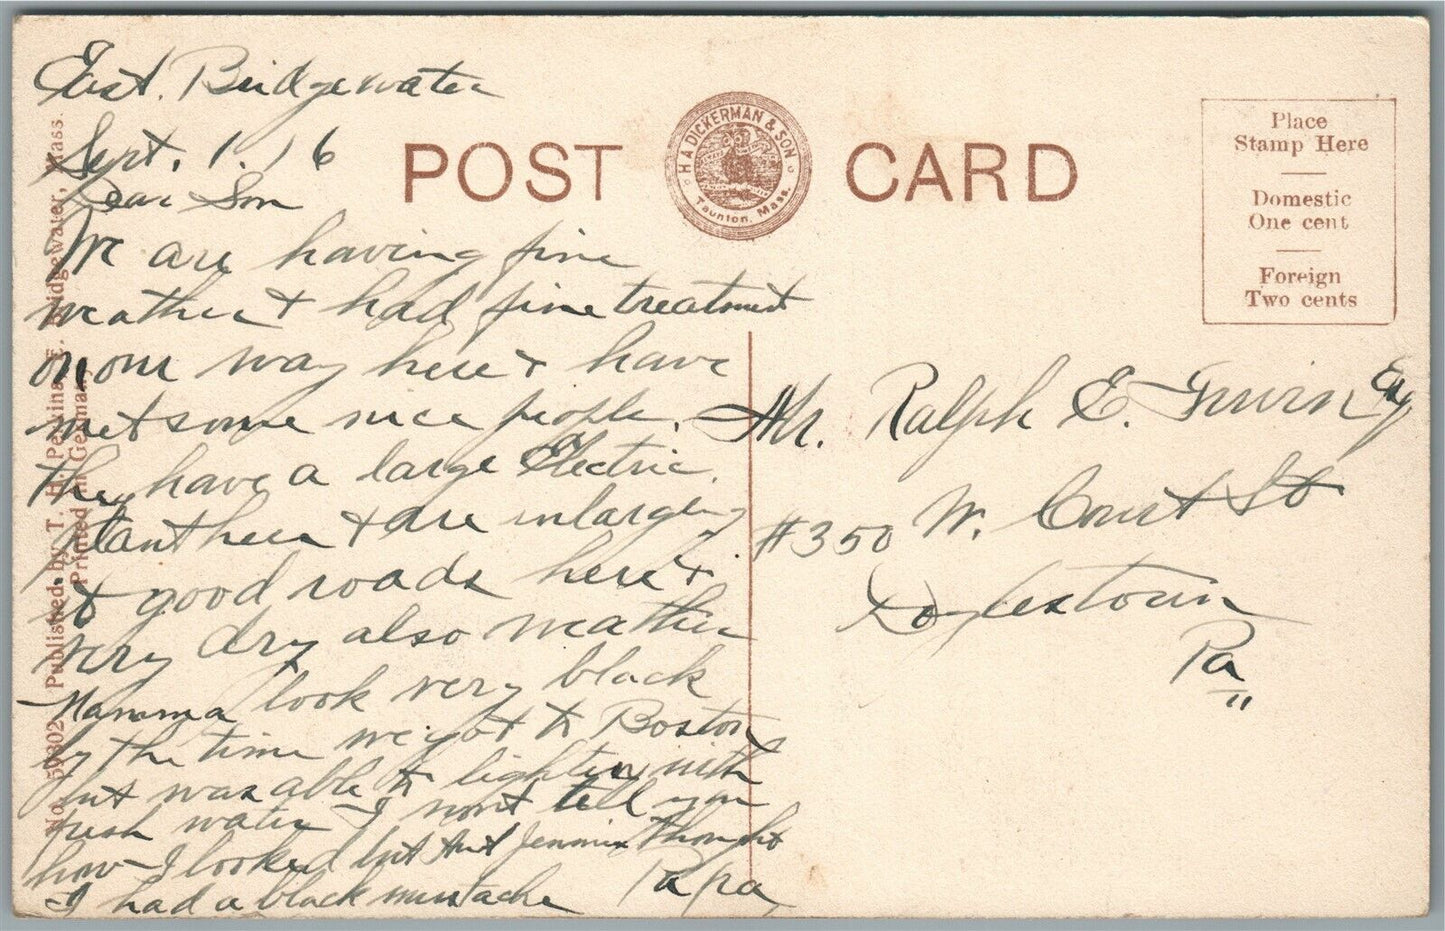 East. Bridgewater
Sept. 1. 16
Dear Son
We are having fine
weather & had fine treatment
on our way here & have
met some nice people.
they have a large Electric
plant here & are inlargeing
it good roads here &
very dry also weather
Mamma look very black
by the time we got to Boston
but was able to lighten with
fresh water - I wont tell you
how I looked but Ant Jennie thought
I had a black mustache
Papa
POST CARD
H A DICKERMAN & SON
Taunton, Mass.
Place
Stamp Here
Domestic
One cent
Foreign
Two cents
Mr. Ralph E. Irwin Esq
#350 W. Court St
Doylestown
Pa
No. 59302 Published by T. H. Perkins, E. Bridgewater, Mass.
Printed in Germany